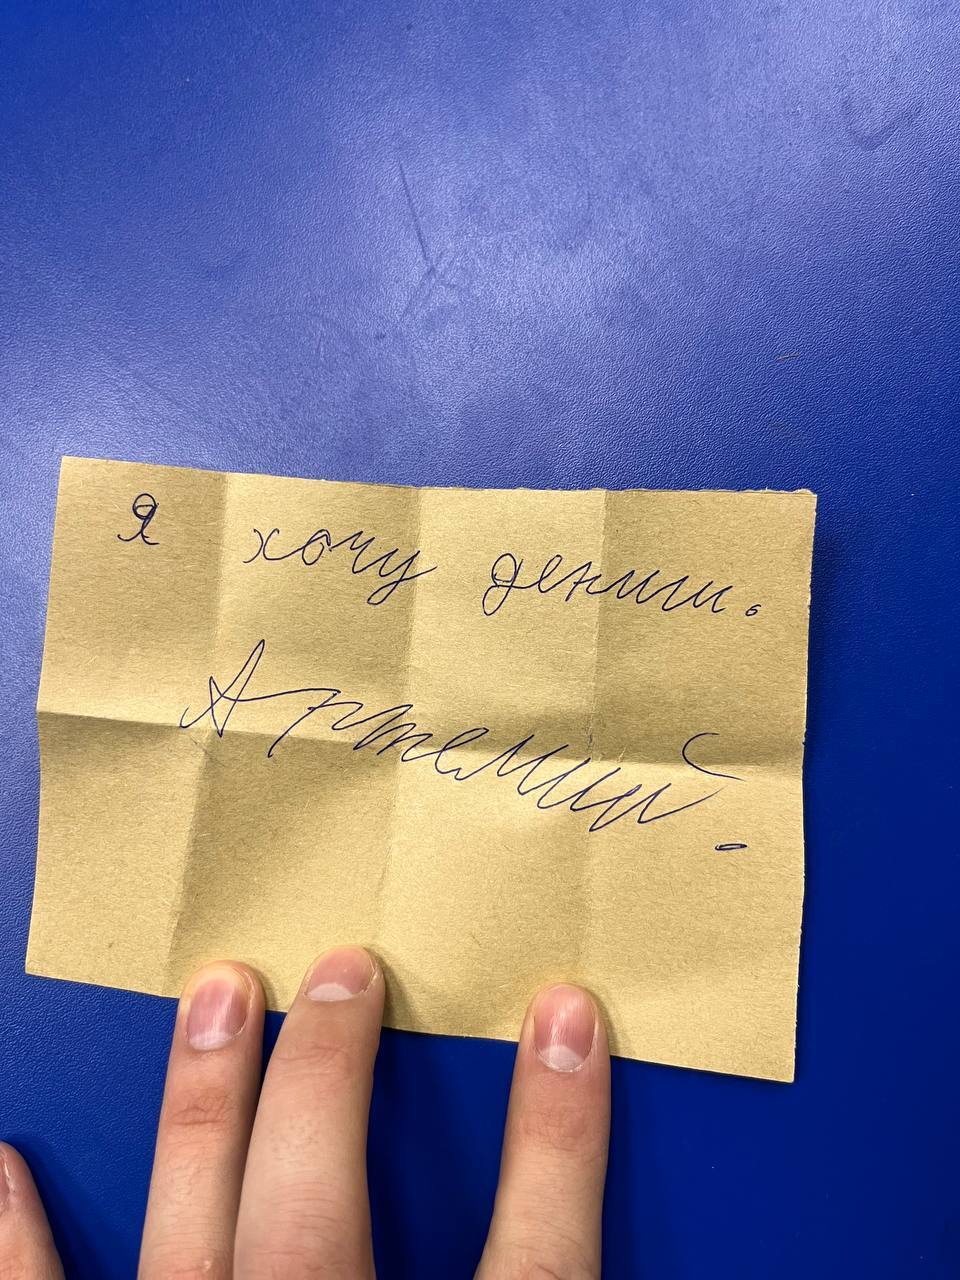 Я хочу деньги.
Артемий.